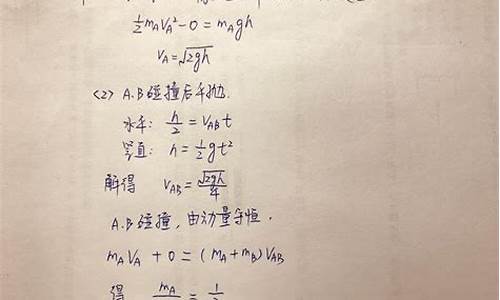 ½mAVA²-0=mAgh
VA=√2gh
<2> A.B碰撞后平抛.
水平: h/2=VABt
竖直: h=½gt²
解得 VAB=√2gh/4
A.B碰撞,由动量守恒.
mAVA+0=(mA+mB)VAB
得 mA =